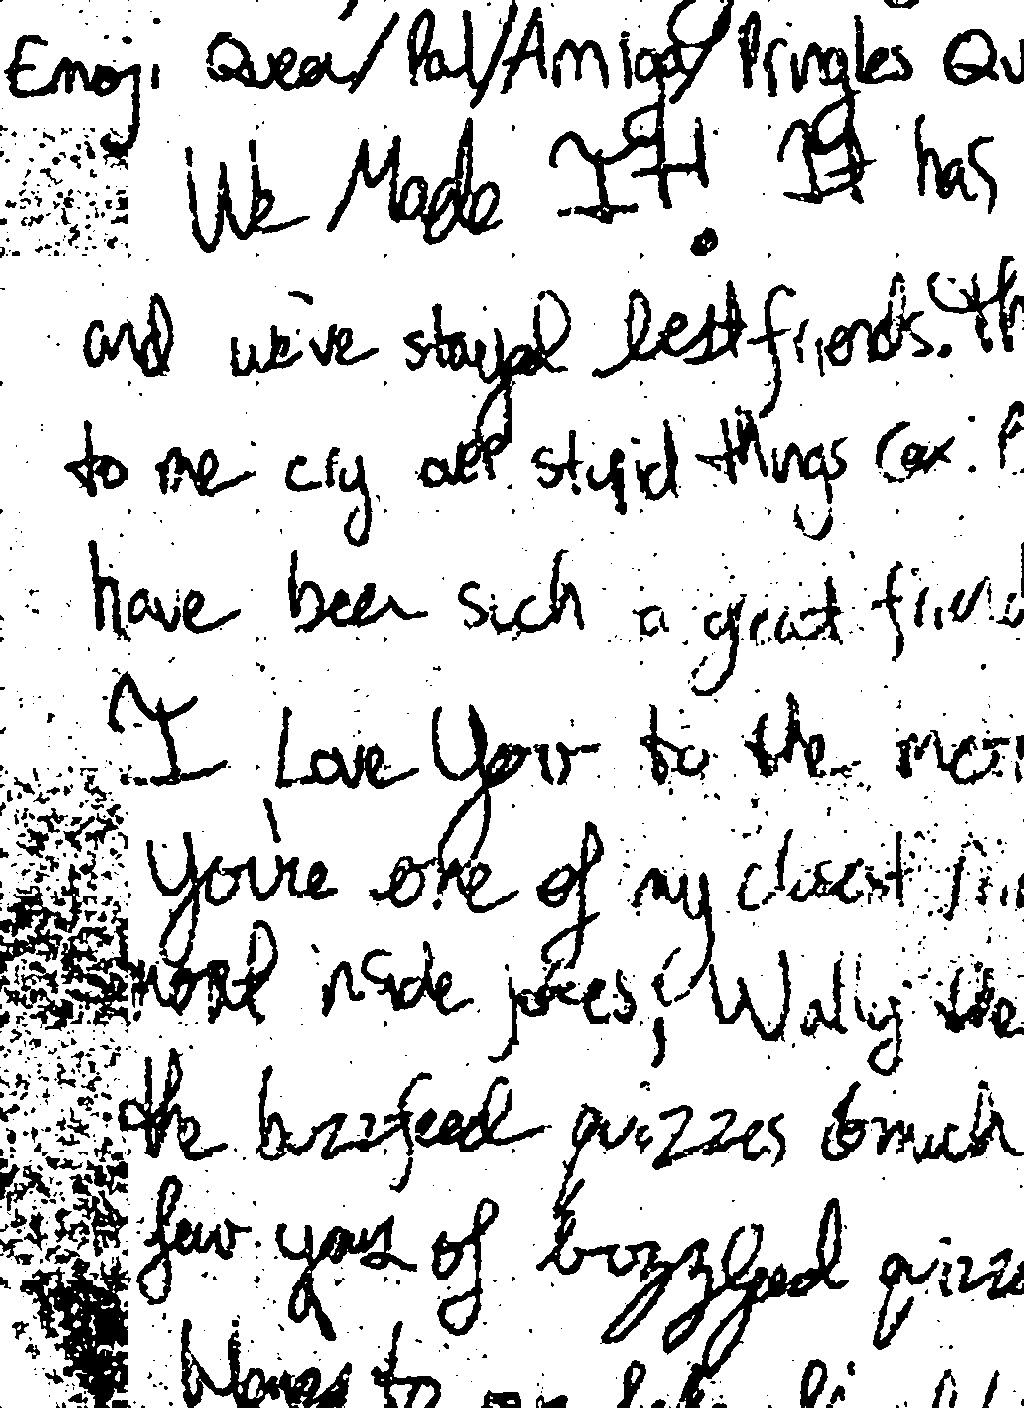 Emoji Queen/Pal/Amiga/Pringles Qu
We Made It! It has
and we've stayed best friends. Th
to me cry over stupid things (ex: P
have been such a great friend
I Love You to the moo
You're one of my closest frie
most inside jokes; Wally the
the buzzfeed quizzes & much
few years of buzzfeed quizze
to